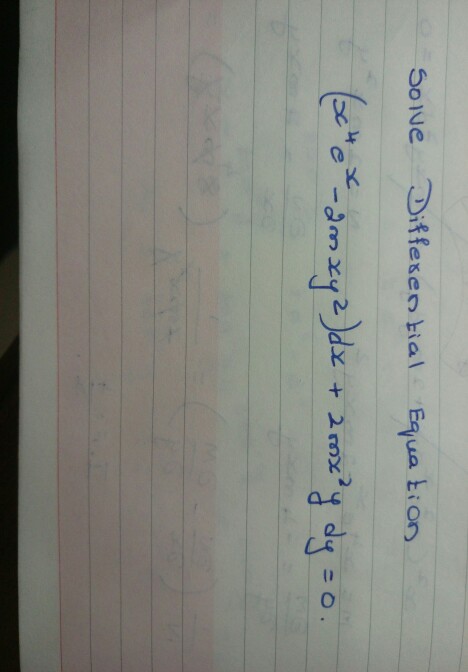 Solve Differential Equation
(x⁴eˣ - 2mxy²)dx + 2mx²y dy = 0.